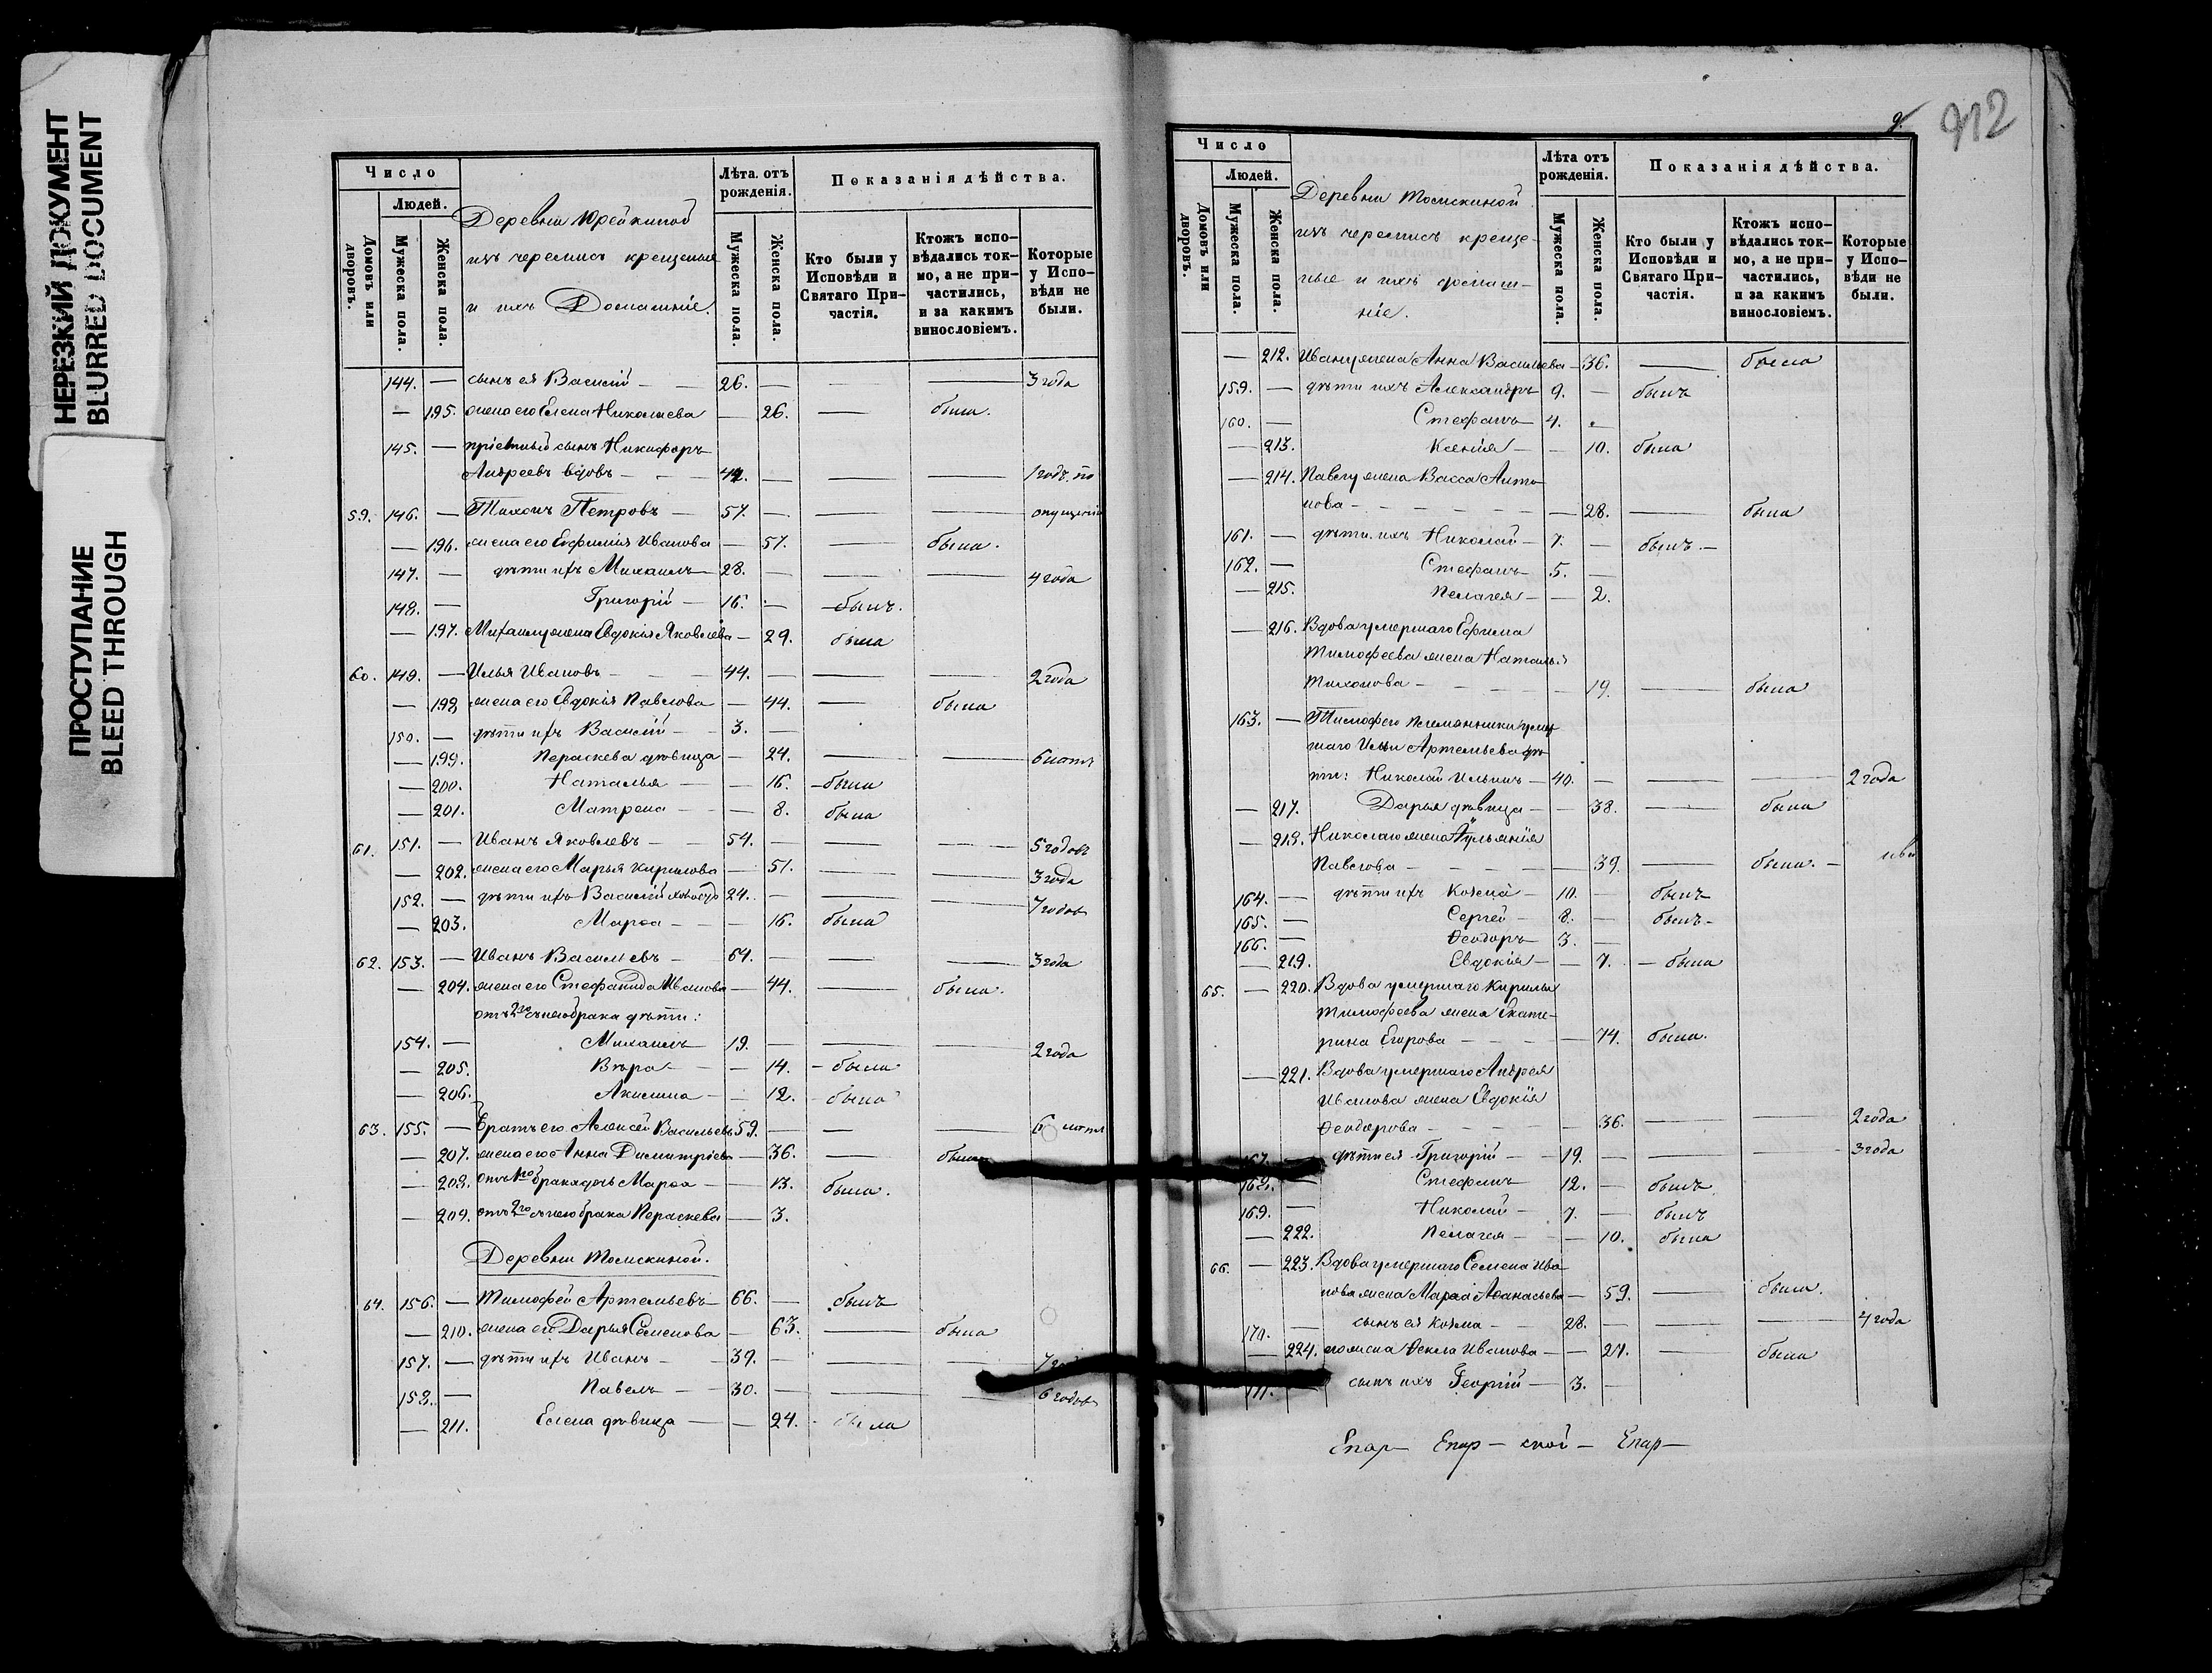 НЕРЕЗКИЙ ДОКУМЕНТ
BLURRED DOCUMENT
ПРОСТУПАНИЕ
BLEED THROUGH
Число
Людей.
Домовъ или дворовъ.
Мужеска пола.
Женска пола.
Деревни Юрейкиной
изъ черемисъ крещеные
и ихъ Домашніе.
Лѣта отъ рожденія.
Мужеска пола.
Женска пола.
Показанія дѣйства.
Кто были у Исповѣди и Святаго Причастія.
Ктожъ исповѣдались токмо, а не причастились, и за какимъ винословіемъ.
Которые у Исповѣди не были.
144. — сынъ ея Василій — 26. — — — 3 года
— 195. жена его Елена Николаева — 26. — была.
145. — пріемный сынъ Никифоръ
Андреевъ вдовъ — 44. — — — 1 годъ. по
59. 146. — Тихонъ Петровъ — 57. — — — опущенію
— 196. жена его Евфимія Иванова — 57. — была.
147. — дѣти ихъ Михаилъ — 28. — — — 4 года
148. — Григорій — 16. — былъ.
— 197. Михаилу жена Евдокія Яковлева — 29. была
60. 149. — Илья Ивановъ — 44. — — — 2 года
— 198. жена его Евдокія Павлова — 44. — была
150. — дѣти ихъ Василій — 3. —
— 199. Параскева дѣвица — 24. — — 6 лѣтъ
— 200. Наталья — 16. — была
— 201. Матрена — 8. была
61. 151. — Иванъ Яковлевъ — 54. — — — 5 годовъ
— 202. жена его Марья Кирилова — 51. — — 3 года
152. — дѣти ихъ Василій 24. — — — 7 годовъ
— 203. Марѳа — 16. была
62. 153. — Иванъ Васильевъ — 64. — — — 3 года
— 204. жена его Стефанида Иванова — 44. — была.
отъ 2го съ нею брака дѣти:
154. — Михаилъ — 19. — — — 2 года
— 205. Вѣра — 14. — была
— 206. Акилина — 12. — была
63. 155. — Братъ его Алексѣй Васильевъ 59. — — — 6 лѣтъ
— 207. жена его Анна Димитріева — 36. — была
— 208. отъ 1го брака дочь Марѳа — 13. была.
— 209. отъ 2го съ нею брака Параскева — 3.
Деревни Томскиной.
64. 156. — Тимофей Артемьевъ — 66. — былъ
— 210. жена его Дарья Семенова — 63. — была
157. — дѣти ихъ Иванъ — 39. — — — 7
158. — Павелъ — 30. — — — 6 годовъ
— 211. Елена дѣвица — 24. — была
9.
912
Число
Людей.
Домовъ или дворовъ.
Мужеска пола.
Женска пола.
Деревни Томскиной
изъ черемисъ креще-
ные и ихъ домаш-
ніе.
Лѣта отъ рожденія.
Мужеска пола.
Женска пола.
Показанія дѣйства.
Кто были у Исповѣди и Святаго Причастія.
Ктожъ исповѣдались токмо, а не причастились, и за какимъ винословіемъ.
Которые у Исповѣди не были.
— 212. Ивану жена Анна Васильева — 36. — была
159. — дѣти ихъ Александръ 9. — былъ
160. — Стефанъ — 4. —
— 213. Ксенія — 10. была
— 214. Павлу жена Васса Анто-
нова — 28. — была
161. — дѣти ихъ Николай — 7. — былъ. —
162. — Стефанъ — 5. —
— 215. Пелагея — 2.
— 216. Вдова умершаго Ефима
Тимофеева жена Наталья
Тихонова — 19. — была
163. — Тимофею племянники умер
шаго Ильи Артемьева дѣ-
ти: Николай Ильинъ — 40. — — — 2 года
— 217. Дарья дѣвица — 38. — была
— 218. Николаю жена Ульянія
Павлова — 39. — была. —
164. — дѣти ихъ Козма — 10. — былъ
165. — Сергей — 8. — былъ —
166. — Ѳеодоръ — 3. —
— 219. Евдокія — 7. — была
65. — 220. Вдова умершаго Кирилы
Тимофеева жена Екате-
рина Егорова — 74. была.
— 221. Вдова умершаго Андрея
Иванова жена Евдокія
Ѳеодорова — 36. — — 2 года
167. — дѣти ея Григорій — 19. — — — 3 года
168. — Стефанъ 12. — былъ
169. — Николай — 7. — былъ
— 222. Пелагея — 10. была
66. — 223. Вдова умершаго Семена Ива
нова жена Марѳа Аѳанасьева — 59. — была.
170. — сынъ ея Козма — 28. — — — 4 года
— 224. его жена Ѳекла Иванова — 27. — была
171. сынъ ихъ Георгій — 3. —
Епар — Епар — ской — Епар —